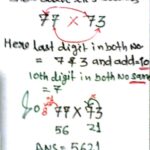 77 × 73
Here last digit in both No
= 7 & 3 and add = 10
10th digit in both No same
= 7
So 77 × 73
56 21
Ans = 5621